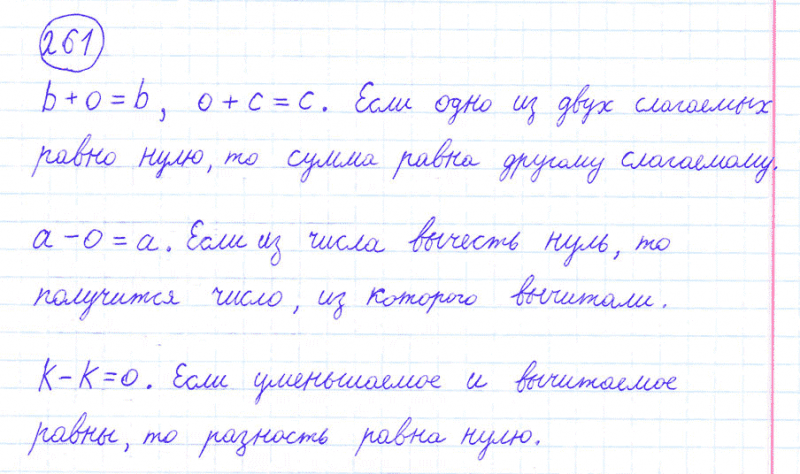 261
b + 0 = b, 0 + c = c. Если одно из двух слагаемых
равно нулю, то сумма равна другому слагаемому.
a - 0 = a. Если из числа вычесть нуль, то
получится число, из которого вычитали.
K - K = 0. Если уменьшаемое и вычитаемое
равны, то разность равна нулю.